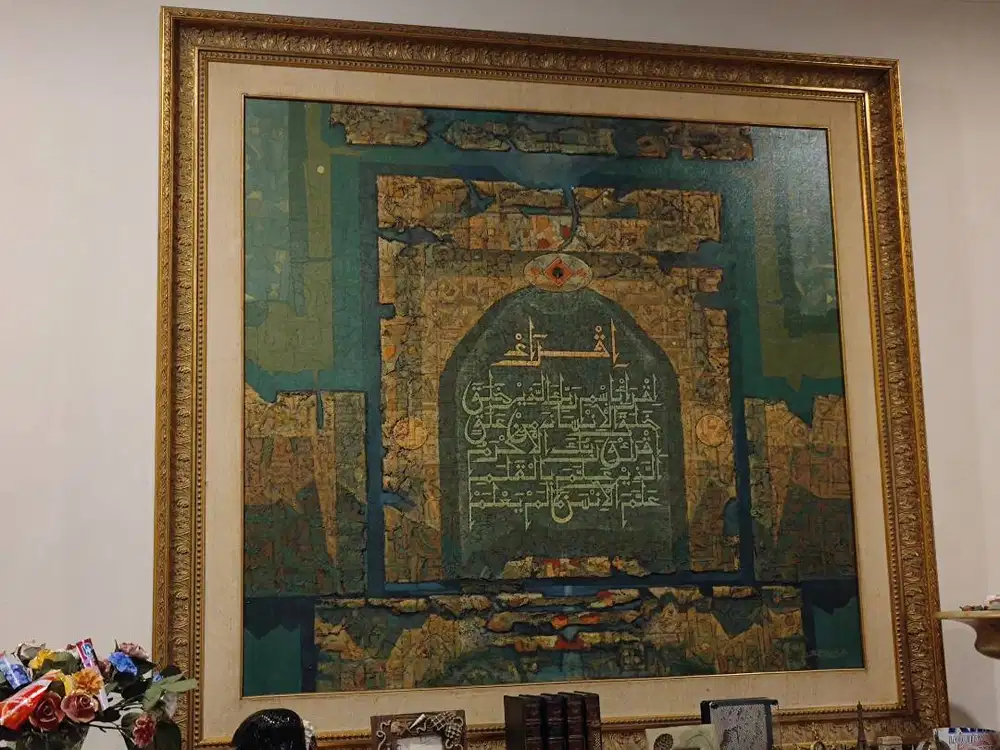 إقرأ
اقرأ باسم ربك الذي خلق
خلق الإنسان من علق
اقرأ وربك الأكرم
الذي علم بالقلم
علم الإنسان ما لم يعلم